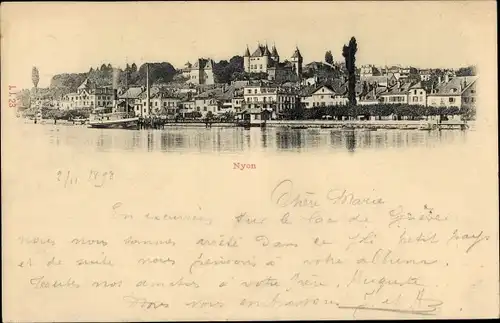 Nyon
2/11 1898
Chère Marie
En excursion sur le lac de Genève
nous nous sommes arrêté dans ce petit pays
et de suite nous pensons à votre album.
Toutes nos amitiés à votre frère, Auguste
Nous vous embrassons